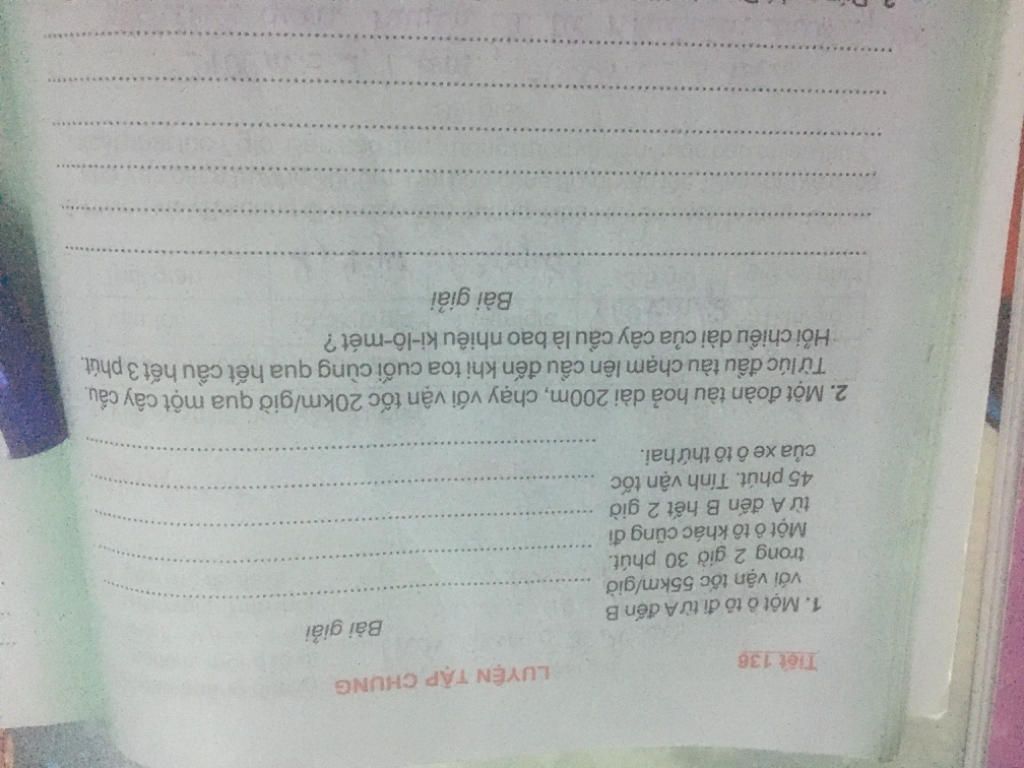 Tiết 136
LUYỆN TẬP CHUNG
1. Một ô tô đi từ A đến B
với vận tốc 55km/giờ
trong 2 giờ 30 phút.
Một ô tô khác cũng đi
từ A đến B hết 2 giờ
45 phút. Tính vận tốc
của xe ô tô thứ hai.
Bài giải
2. Một đoàn tàu hoả dài 200m, chạy với vận tốc 20km/giờ qua một cây cầu.
Từ lúc đầu tàu chạm lên cầu đến khi toa cuối cùng qua hết cầu hết 3 phút.
Hỏi chiều dài của cây cầu là bao nhiêu ki-lô-mét ?
Bài giải